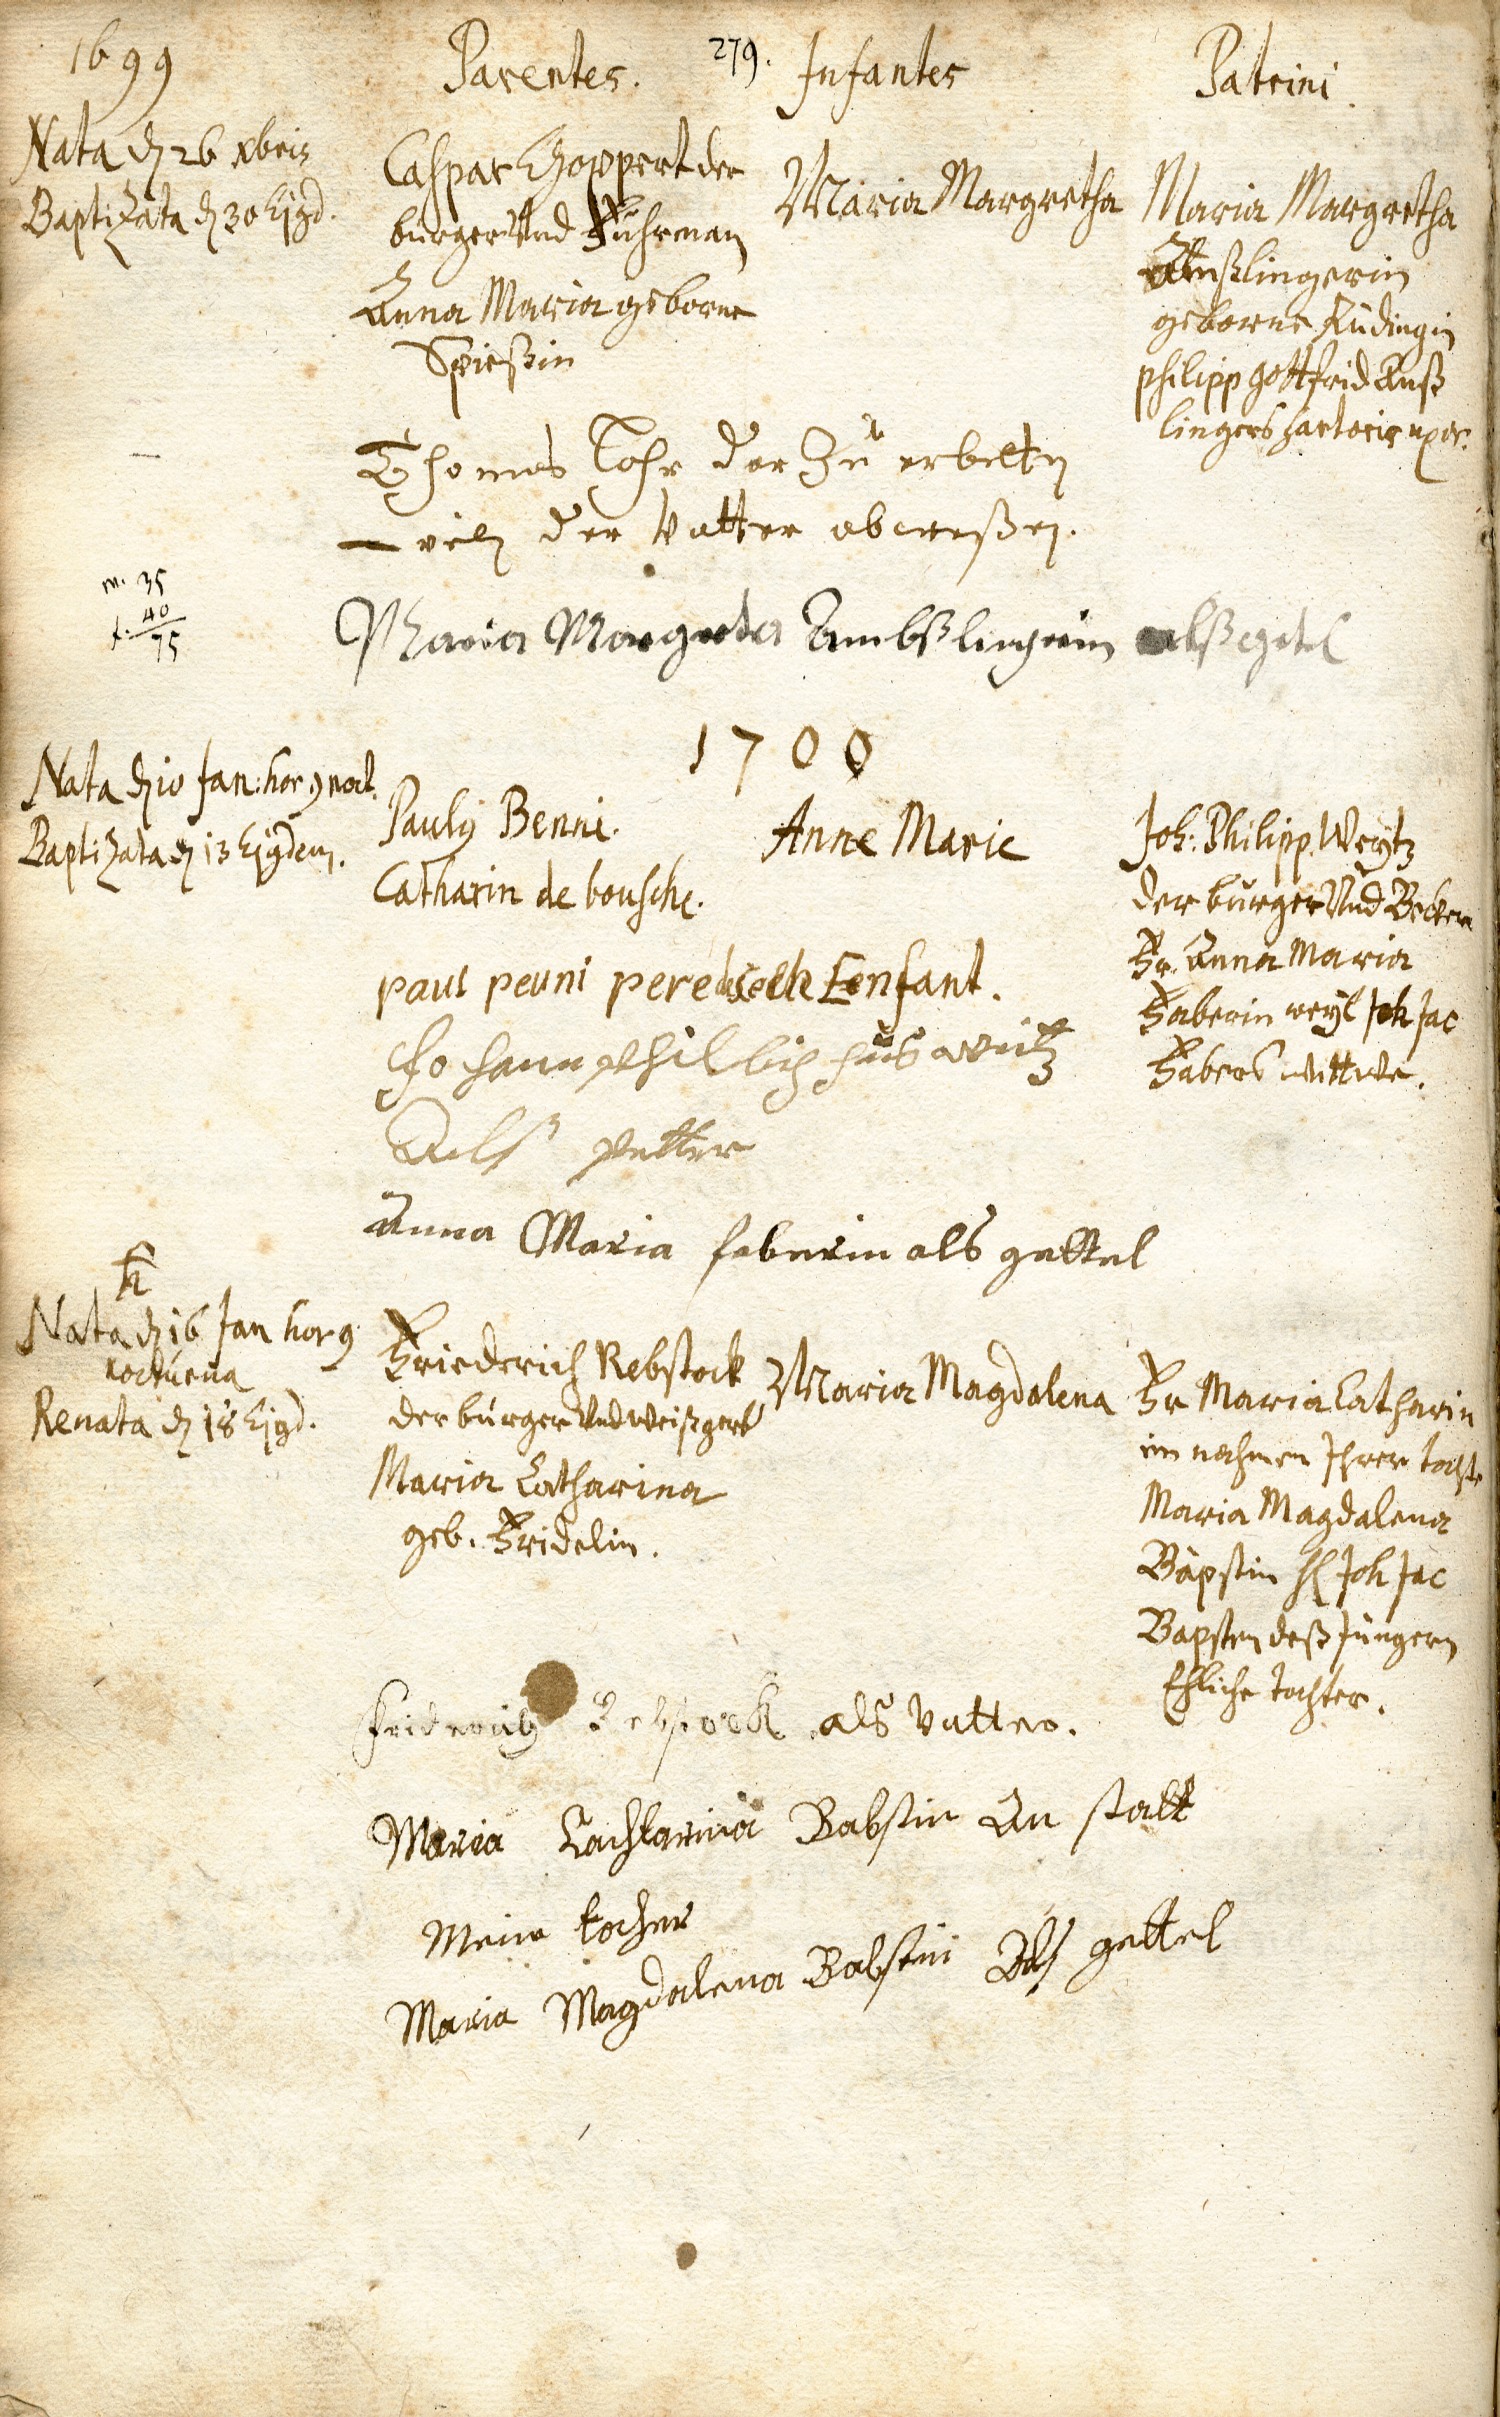 1699
Parentes.
279.
Infantes
Patrini.
Nata dn 26 xbris
Baptizata dn 30 Ejsd.
Caspar Choppert der
burger Und Fuhrman
Anna Maria geborne
Spießin
Maria Margretha
Maria Margretha
Amßlingerin
geborne Rüdingin
philipp Gottfrid Amß
lingers Sartoris uxor.
Thomas Lohr der Zu erbetten
weil der Vatter abweßen.
m. 35
f. 40
75
Maria Margreta Ambßlingerin alß getel
1700
Nata dn 10 Jan: hor 9 noct.
Baptizata dn 13 Ejsdem.
Pauly Benni.
Catharin de bousche.
Anne Marie
Joh: Philipp Weytz
der burger Und Becker
Fr. Anna Maria
Faberin weyl Joh Jac
Fabers wittwe.
paul peuni pere Lenfant.
Johann phillich weitz
Alß petter
Anna Maria faberin als gettel
Nata dn 16 Jan hor 9
nocturna
Renata dn 18 Ejsd.
Friederich Rebstock
der burger Und Weißgerb
Maria Catharina
geb. Fridelin.
Maria Magdalena
Fr Maria Catharin
im nahmen Ihrer tocht
Maria Magdalena
Bäpstin Joh Jac
Bapsten deß Jüngern
Ehliche tochter.
Friderich Rebstock als Vatter.
Maria Cachtarina Babstin An statt
Meine tochter
Maria Magdalena Babstin Als gettel